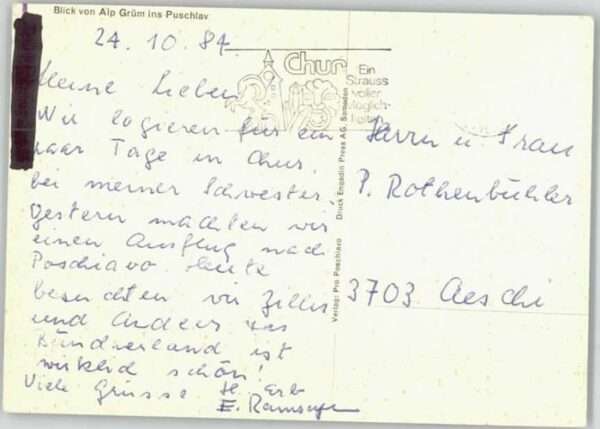 Blick von Alp Grüm ins Puschlav
24. 10. 84
Meine Lieben
Wir logieren für ein
paar Tage in Chur,
bei meiner Schwester,
Gestern machten wir
einen Ausflug nach
Poschiavo heute
besuchten wir Zillis
und Andeer das
Bündnerland ist
wirklich schön!
Viele Grüsse H. Erb
E.
Chur
Ein
Strauss
voller
Möglich-
keiten
Verlag: Pro Poschiavo Druck Engadin Press AG, Samedan
Herrn u Frau
P. Rothenbühler
3703 Aeschi